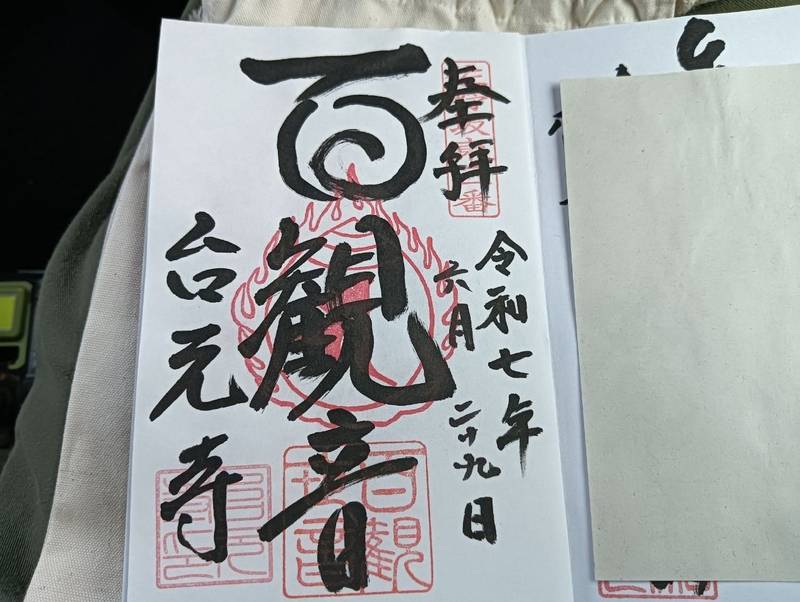 奉拝
令和七年
六月二十九日
百観音
台元寺
百観
世音